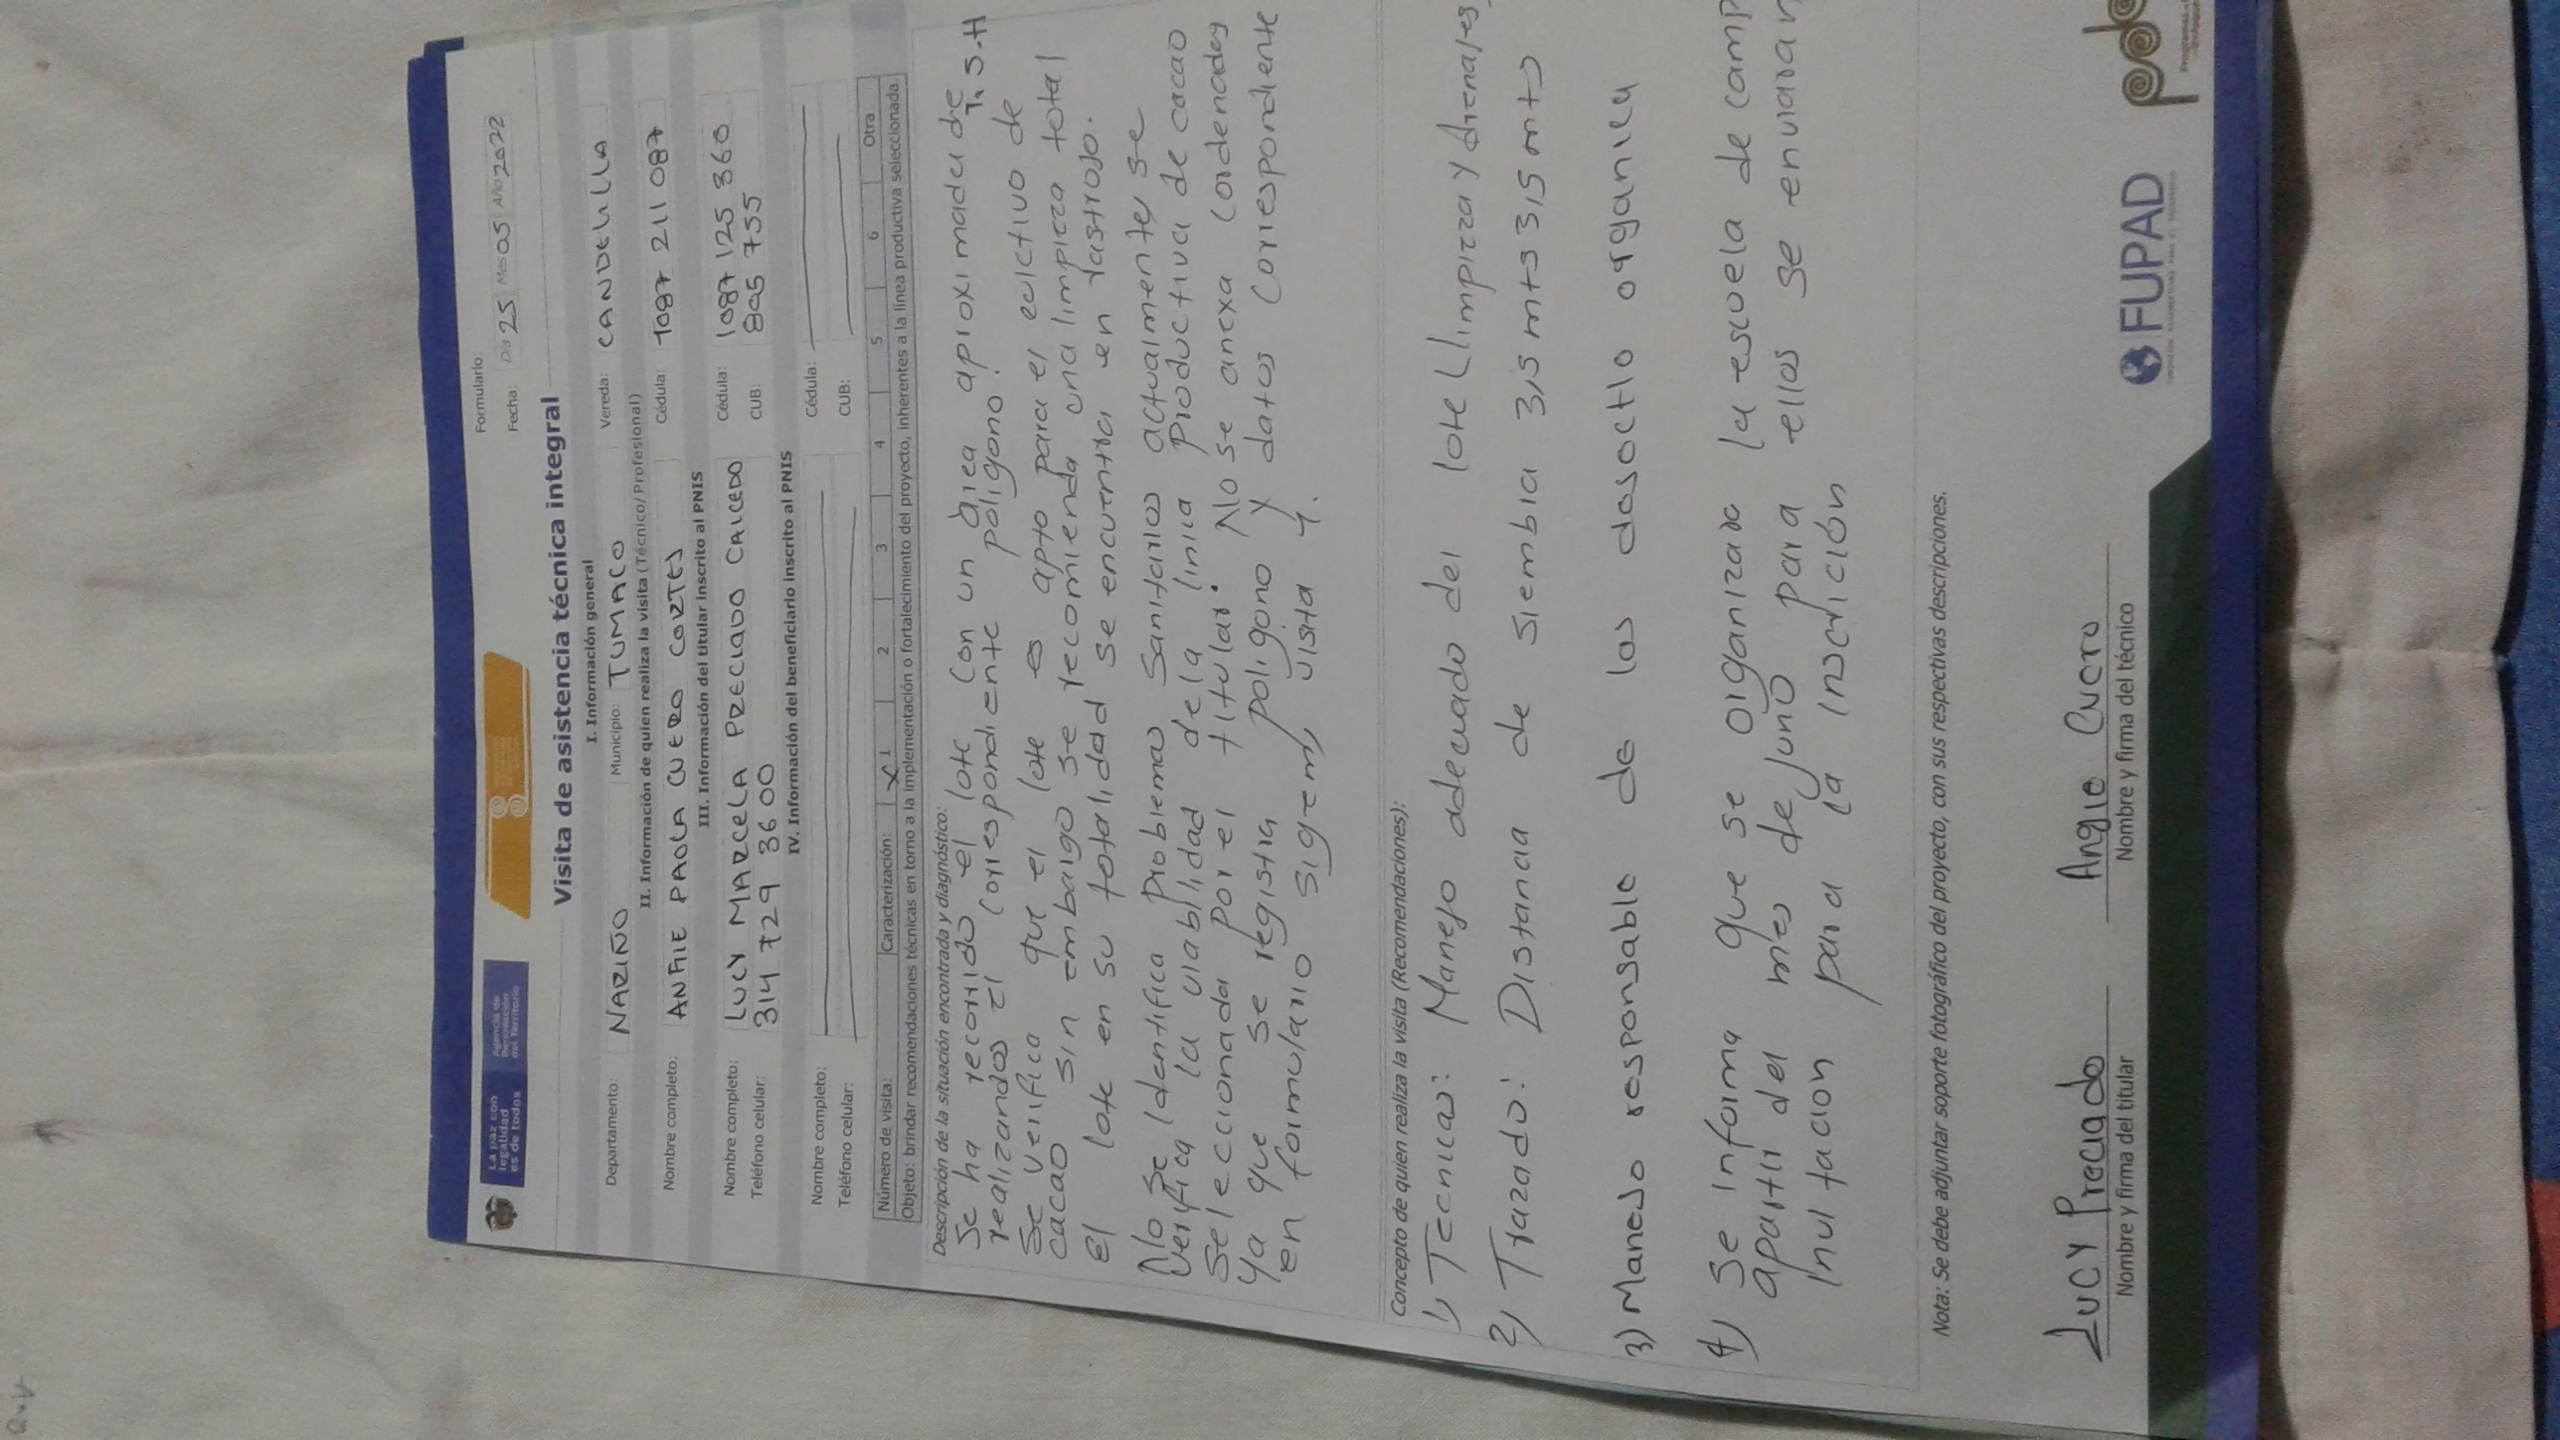 La paz con
legalidad
es de todos
Agencia de
Renovación
del Territorio
Formulario:
Fecha: Día 25 Mes 05 Año 2022
Visita de asistencia técnica integral
I. Información general
Departamento: NARIÑO Municipio: TUMACO Vereda: CANDELILLA
II. Información de quien realiza la visita (Técnico/Profesional)
Nombre completo: ANGIE PAOLA CUERO CORTES Cédula: 1087 211 087
III. Información del titular inscrito al PNIS
Nombre completo: LUCY MARCELA PRECIADO CAICEDO Cédula: 1087 125 360
Teléfono celular: 314 729 36 00 CUB: 805 755
IV. Información del beneficiario inscrito al PNIS
Nombre completo: Cédula:
Teléfono celular: CUB:
Número de visita: Caracterización: X 1 2 3 4 5 6 Otra
Objeto: brindar recomendaciones técnicas en torno a la implementación o fortalecimiento del proyecto, inherentes a la línea productiva seleccionada.
Descripción de la situación encontrada y diagnóstico:
Se ha recorrido el lote con un área aproximada de 1,5-H
realizandos el correspondiente poligono.
Se verifica que el lote es apto para el cultivo de
cacao sin embargo se recomienda una limpieza total
El lote en su totalidad se encuentra en rastrojo.
No se identifica problemas sanitarios actualmente, se
verifica la viabilidad de la linia productiva de cacao
seleccionada por el titular. No se anexa cordenadas
ya que se registra poligono y datos correspondiente
en formulario sigrem, visita 1.
Concepto de quien realiza la visita (Recomendaciones):
1) Tecnicas: Manejo adecuado del lote (limpieza y drenajes)
2) Trazado: Distancia de siembra 3,5 mts 3,5 mts
3) Manejo responsable de los desecho organica
4) Se informa que se organizara la escuela de camp
apartir del mes de junio para ellos se enviaran
invitacion para la inscrición
Nota: Se debe adjuntar soporte fotográfico del proyecto, con sus respectivas descripciones.
Lucy Preciado Angie Cuero
Nombre y firma del titular Nombre y firma del técnico
FUPAD